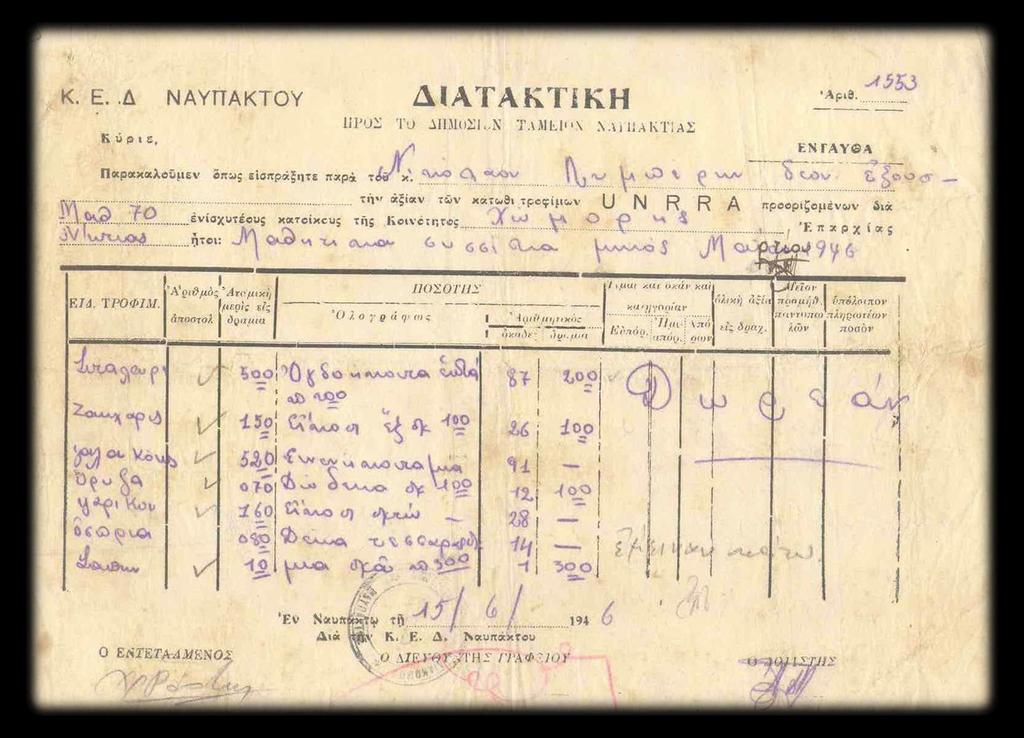 Κ. Ε. .Δ ΝΑΥΠΑΚΤΟΥ
ΔΙΑΤΑΚΤΙΚΗ
Ἀριθ. 1553
ΠΡΟΣ ΤΟ ΔΗΜΟΣΙΟΝ ΤΑΜΕΙΟΝ ΝΑΥΠΑΚΤΙΑΣ
Κύριε,
ΕΝΤΑΥΘΑ
Παρακαλοῦμεν ὅπως εἰσπράξητε παρὰ τοῦ κ. Νικολάου
τὴν ἀξίαν τῶν κάτωθι τροφίμων UNRRA προοριζομένων διὰ
Μαθ 70 ἐνίσχυτέους κατοίκους τῆς Κοινότητος Χωμορης Ἐπαρχίας
Ν)κτιας ἤτοι: Μαθητικα συσσίτια μηνός 1946
ΕΙΔ. ΤΡΟΦΙΜ.
Ἀριθμὸς ἀποστολ
Ἀτομικὴ μερὶς εἰς δράμια
ΠΟΣΟΤΗΣ
Ὁλογράφως
Ἀριθμητικός
ὀκάδες δράμια
Τιμαὶ κατ' ὀκᾶν καὶ κατηγορίαν
Εὐπόρ. Ἡμιαπόρ. Ἀπόρων
ὁλικὴ ἀξία εἰς δραχ.
Μεῖον προμήθ. παντοπωλῶν
ὑπόλοιπον πληρωτέον ποσὸν
500 Ὀγδοήκοντα ἑπτά 87 200 Δωρεάν
κ 200
Ζακχαρις 150 Εἴκοσι ἕξ κ 100 26 100
520 Ενενήκοντα μια 91 —
Ορυζα 070 Δωδεκα κ 100 12 100
160 Εἴκοσι ὀκτώ — 28 —
ὀσπρια 080 Δεκα τεσσαρες 14 —
Σαπουν 10 μια ὀκᾶ κ 300 1 300
Ἐν Ναυπάκτῳ τῇ 15/6/ 1946
Διὰ τὴν Κ. Ε. Δ. Ναυπάκτου
Ο ΕΝΤΕΤΑΛΜΕΝΟΣ
Ο ΔΙΕΥΘΥΝΤΗΣ ΓΡΑΦΕΙΟΥ
Ο ΛΟΓΙΣΤΗΣ